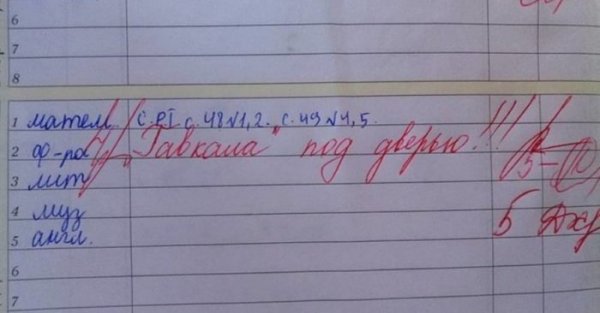 6
7
8
1 матем. с. РТ с. 48 №1,2. с. 49 №4,5.
2 ф-ра "Гавкала" под дверью!!! 5-
3 лит
4 муз 5
5 англ.
6
7